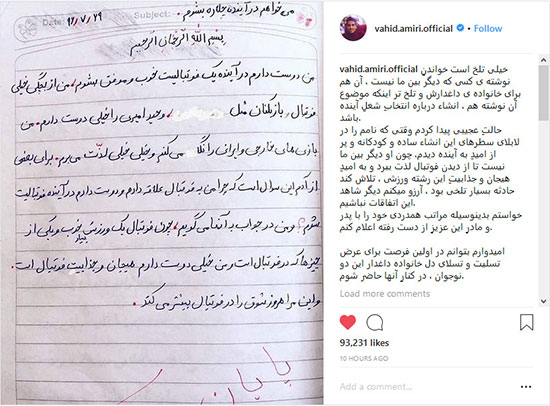 می خواهم در آینده چکاره بشوم.
Date:
Subject:
بسم الله الرحمن الرحیم
من دوست دارم در آینده یک فوتبالیست خوب و موفق بشوم. من از بچگی خیلی
فوتبال و بازیکنان مثل وحید امیری را خیلی دوست دارم. من
بازی های خارجی و ایرانی را نگاه می کنم و خیلی خیلی لذت می برم. برای بعضی
از آدم این سوال است که چرا من به فوتبال علاقه دارم و دوست دارم در آینده فوتبالیست
شوم؟ و من در جواب به آنها می گویم، چون فوتبال یک ورزش بسیار خوب و یکی از
چیزها که در فوتبال است و من خیلی دوست دارم هیجان و جذابیت فوتبال است.
و این مرا هر روز شوق را در فوتبال بیشتر می کند.
پایان
vahid.amiri.official • Follow
vahid.amiri.official خیلی تلخ است خواندنِ
نوشته ی کسی که دیگر بین ما نیست ، آن هم
برای خانواده ی داغدارش و تلخ تر اینکه موضوع
آن نوشته هم ، انشاء درباره انتخابِ شغلِ آینده
باشد
حالتِ عجیبی پیدا کردم وقتی که نامم را در
لابلای سطرهای این انشاء ساده و کودکانه و پر
از امیدِ به آینده دیدم، چون او دیگر بین ما
نیست تا از دیدن فوتبال لذت ببرد و به امیدِ
هیجان و جذابیتِ این رشته ورزشی ، تلاش کند
حادثه بسیار تلخی بود ، آرزو میکنم دیگر شاهد
این اتفاقات نباشیم
خواستم بدینوسیله مراتب همدردی خود را با پدر
و مادر این عزیز از دست رفته اعلام کنم
امیدوارم بتوانم در اولین فرصت برای عرض
تسلیت و تسلای دل خانواده داغدار این دو
نوجوان ، در کنارِ آنها حاضر شوم
Load more comments
93,231 likes
10 HOURS AGO
Add a comment...